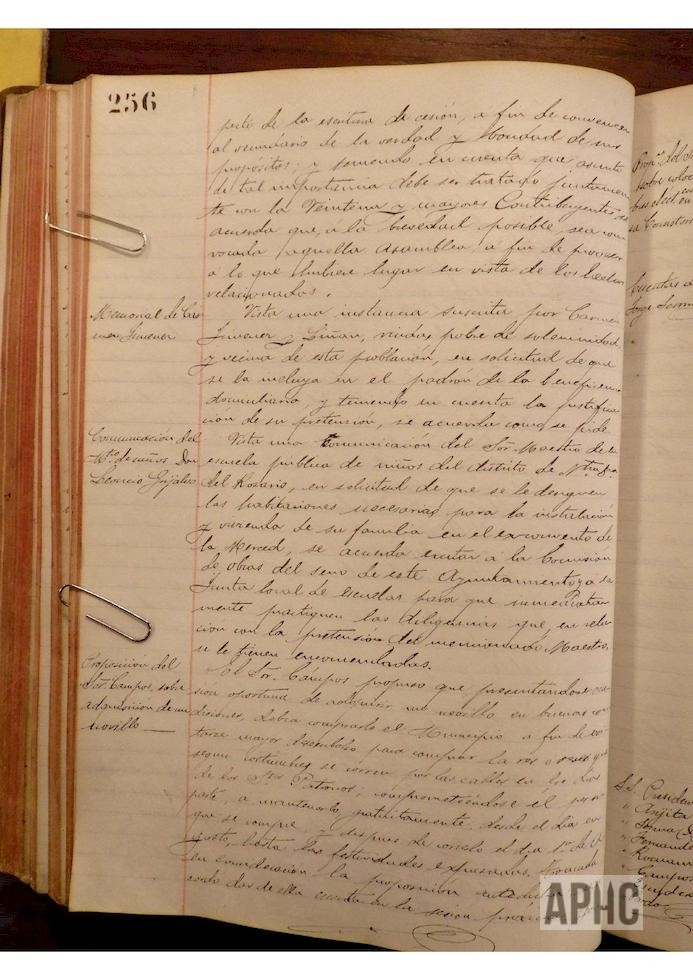 256
pecto de la escritura de cesión, á fin de convencer
al vecindario de la verdad y bondad de sus
propósitos; y teniendo en cuenta que asunto
de tal importancia debe ser tratado juntamen
te con la Veintena y mayores Contribuyentes, se
acuerda que, á la brevedad posible sea con
vocada aquella Asamblea á fin de proveer
á lo que hubiere lugar en vista de los hechos
relacionados.
Memorial de Car
men Jimenez
Vista una instancia suscrita por Carmen
Jimenez y Liñan, viuda, pobre de solemnidad
y vecina de esta población, en solicitud de que
se la incluya en el padrón de la beneficencia
domiciliaria, y teniendo en cuenta la justifica
ción de su pretensión, se acuerda como se pide.
Comunicación del
Mtro. de niños Don
Leoncio Grijalvo
Vista una Comunicación del Sor. Maestro de la
escuela pública de niños del distrito de Ntra.
del Rosario, en solicitud de que se le designen
las habitaciones necesarias para la instalación
y vivienda de su familia en el exconvento de
la Merced, se acuerda excitar á la Comisión
de obras del seno de este Ayuntamiento y á la
Junta local de escuelas para que inmediata
mente practiquen las diligencias que, en rela
ción con la pretensión del mencionado Maestro,
se le tienen encomendadas.
Proposición del
Sor. Campos, sobre
adquisicion de un
novillo
El Sor. Campos propuso que presentándose oca
sion oportuna de adquirir un novillo en buenas con
diciones, debia comprarlo el Municipio á fin de evi
tarse mayor desembolso para comprar la res que
segun costumbre se corren por las calles en los dias
de los Stos. Patronos; comprometiéndose él por su
parte, á mantenerlo, gratuitamente, desde el dia en
que se compre, y despues de correrlo el dia 1º de A
gosto, hasta las festividades expresadas. Tomada
en consideración la proposicion
dar de ella cuenta en la sesion
sobre coloc
Cuentas d
Jorge
Presiden
" Fernande
" Campos
APHC